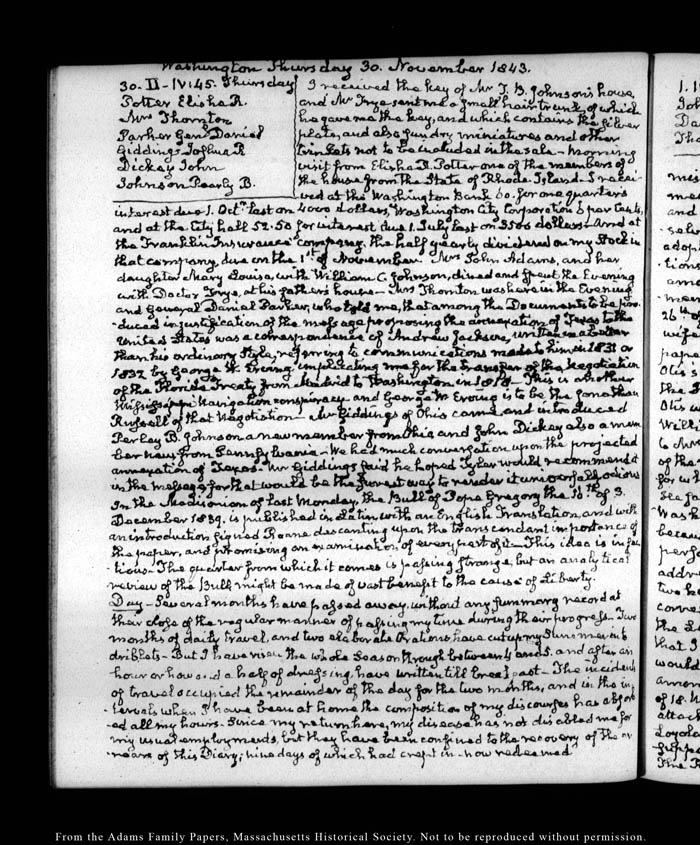 Washington Thursday 30. November 1843.
30. II–IV:45. Thursday
Potter Elisha R.
Mrs Thornton
Parker Genl. Daniel
Giddings Joshua R
Dickey John
Johnson Pearly B.
I received the key of Mr T. B. Johnson's house,
and Mr Frye sent me a small hair trunk, of which
he gave me the key, and which contains the silver
plate, and also sundry miniatures and other
trinkets not to be included in the sale – Morning
visit from Elisha R. Potter one of the members of
the house from the State of Rhode Island. I recei-
ved at the Washington Bank 60. for one quarter's
interest due 1. Octr. last on 4000 dollars, Washington City Corporation 6 per cents,
and at the City hall 52.50 for interest due 1. July last on 3500 dollars – And at
the Franklin Insurance company, the half yearly dividend on my Stock in
that company, due on the 1st of November. Mrs John Adams, and her
daughter Mary Louisa, with William C. Johnson, dined and spent the Evening
with Doctor Frye, at his father's house – Mrs Thornton was here in the Evening
and General Daniel Parker, who told me, that among the Documents to be pro-
duced in justification of the message proposing the annexation of Texas to the
United States was a correspondence of Andrew Jackson, written in a better
than his ordinary style, referring to communications made to him in 1831 or
1832 by George W. Erving, implicating me for the transfer of the negotiation
of the Florida Treaty from Madrid to Washington in 1818 – This is another
Mississippi Navigation conspiracy and George W. Erving is to be the Jonathan
Russell of that Negotiation – Mr Giddings of Ohio came and introduced
Perley B. Johnson a new member from Ohio and John Dickey also a mem-
ber new from Pennsylvania – We had much conversation upon the projected
annexation of Texas – Mr Giddings said he hoped Tyler would recommend it
in the message for that would be the surest way to render it universally odious
In the Madisonian of last Monday, the Bull of Pope Gregory the 16th of 3.
December 1839. is published in Latin with an English Translation, and with
an introduction signed Roane descanting upon the transcendant importance of
the paper, and promising an examination of every part of it – This idea is infec-
tious – The quarter from which it comes is passing strange, but an analytical
review of the Bull might be made of vast benefit to the cause of Liberty.
Day – Several months have passed away, without any summary record at
their close of the regular manner of passing my time during their progress – Two
months of daily travel, and two elaborate Orations have cut up my Summer into
driblets – But I have risen the whole season through between 4 and 5. and after an
hour or hour and a half of dressing, have written till breakfast – The incidents
of travel occupied the remainder of the day for the two months, and in the in-
tervals when I have been at home the composition of my discourses has absorb-
ed all my hours – Since my return here, my disease has not disabled me for
my usual employments, but they have been confined to the recovery of the ar-
rears of this Diary; nine days of which had crept in – now redeemed
From the Adams Family Papers, Massachusetts Historical Society. Not to be reproduced without permission.